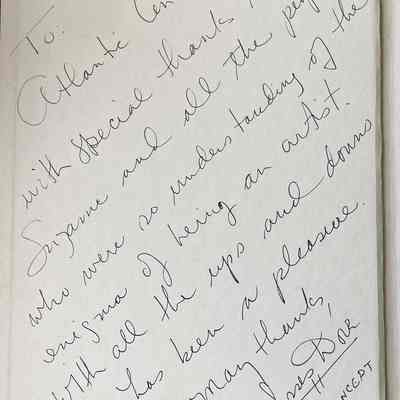 To:
Atlantic Cen
with special thanks
Suzanne and all the pe
who were so understanding of the
enigma of being an artist.
With all the ups and downs
has been a pleasure.
many thanks,
Dorr
NCEPT